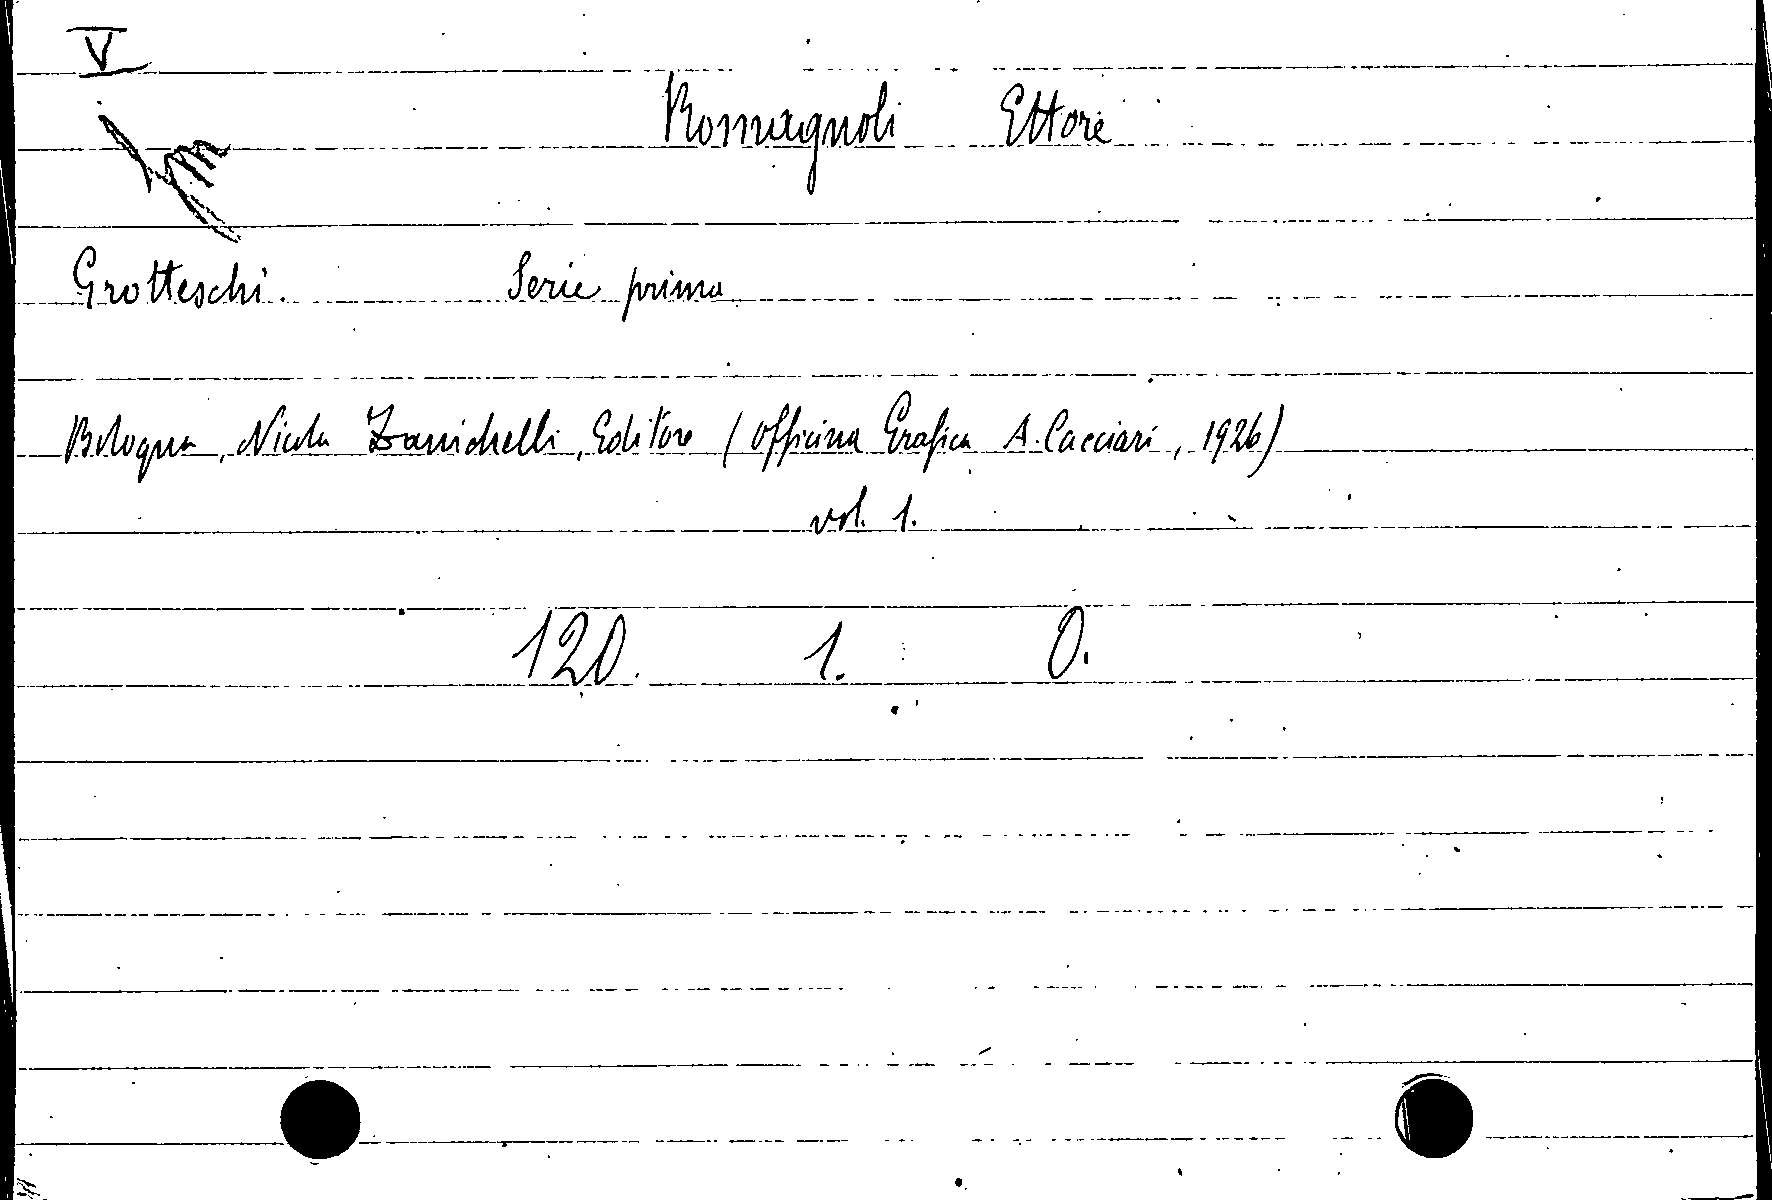 V
Romagnoli Ettore
Grotteschi. Serie prima
Bologna, Nicola Zanichelli, Editore (Officina Grafica A. Cacciari, 1926)
vol. 1.
120. 1. 0.